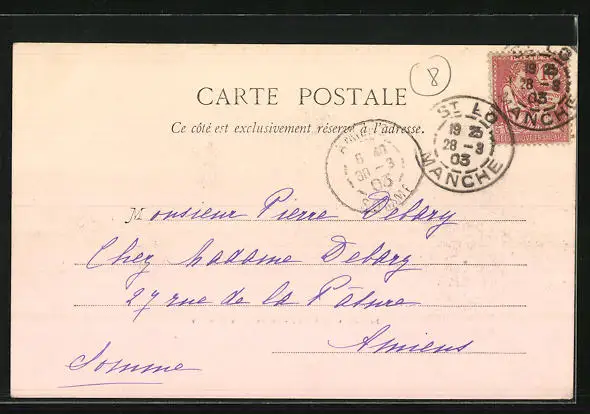 8
CARTE POSTALE
Ce côté est exclusivement réservé à l'adresse.
ST LO
19 25
28 - 3
03
MANCHE
ST LO
19 25
28 - 3
03
MANCHE
6 40
30 - 3
03
Monsieur Pierre Debary
Chez Madame Debary
27 rue de la Pâture
Amiens
Somme